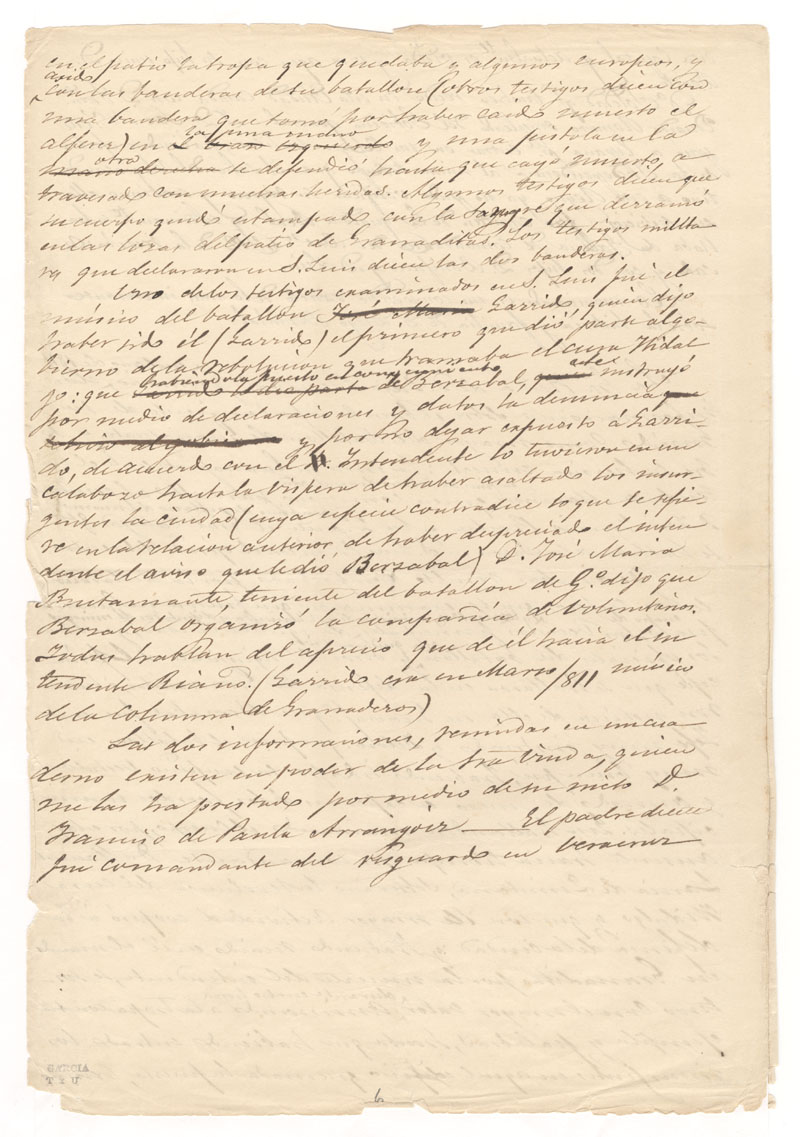 en el patio la tropa que quedaba y algunos europeos, y
asido
con las banderas de su batallon (otros testigos dicen con
una bandera que tomó por haber caido muerto el
alferez) en la una mano y una pistola en la
otra
mano derecha se defendió hasta que cayó muerto, a
travesado con muchas heridas. Algunos testigos dicen que
su cuerpo quedó estampado con la sangre que derramó
en las lozas del patio de Granaditas. Los testigos milita
res que declararon en S. Luis dicen las dos banderas.
Uno de los testigos examinados en S. Luis fué el
músico del batallon José Maria Garrido, quien dijo
haber sido él (Garrido) el primero que dió parte al go-
bierno de la rebolucion que tramaba el cura Hidal
go: que habiendolo puesto en conocimiento
de Berzabal, este instruyó
por medio de declaraciones y datos la denuncia que
y por no dejar expuesto á Garri-
do, de acuerdo con el Intendente lo tuvieron en un
calabozo hasta la vispera de haber asaltado los insur-
gentes la ciudad (cuya especie contradice lo que se refie-
re en la relacion anterior de haber despreciado el inten
dente el aviso que le dió Berzabal) D. José Maria
Bustamante, teniente del batallon de G.º dijo que
Berzabal organizó la compañia de voluntarios.
Todos hablan del aprecio que de él hacia el in
tendente Riaño. (Garrido era en Marzo /811 músico
de la Columna de Granaderos)
Las dos informaciones, reunidas en un cua
derno existen en poder de la Sra. viuda, quien
me las ha prestado por medio de su nieto D.
Francisco de Paula Arrangoiz — El padre de este
fué comandante del resguardo en Veracruz
GARCIA
6